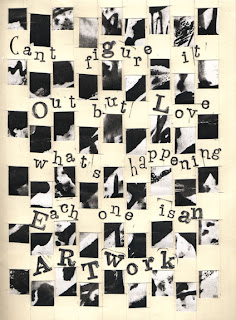 Cant figure it
Out but Love
what's happening
Each one is an
ARTWORK